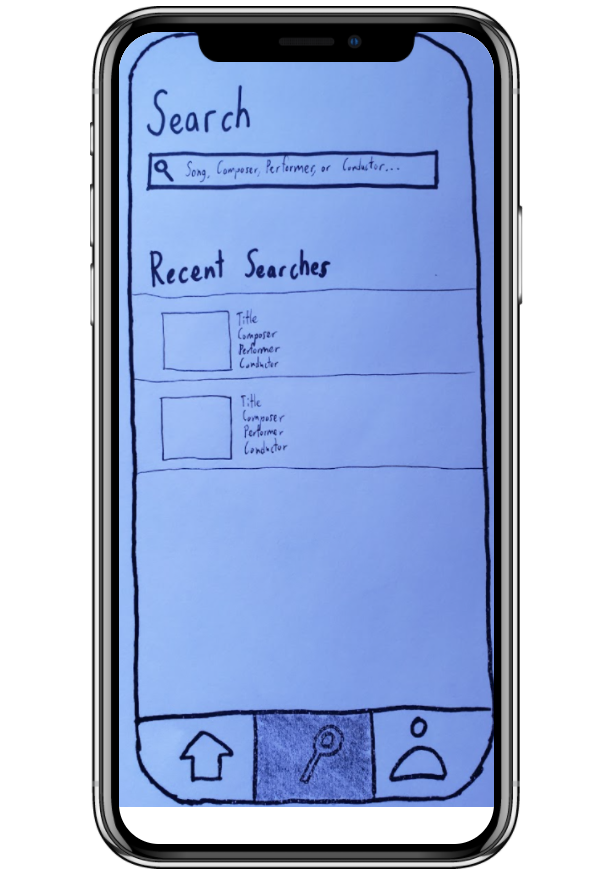 Search
Song, Composer, Performer, or Conductor...
Recent Searches
Title
Composer
Performer
Conductor
Title
Composer
Performer
Conductor